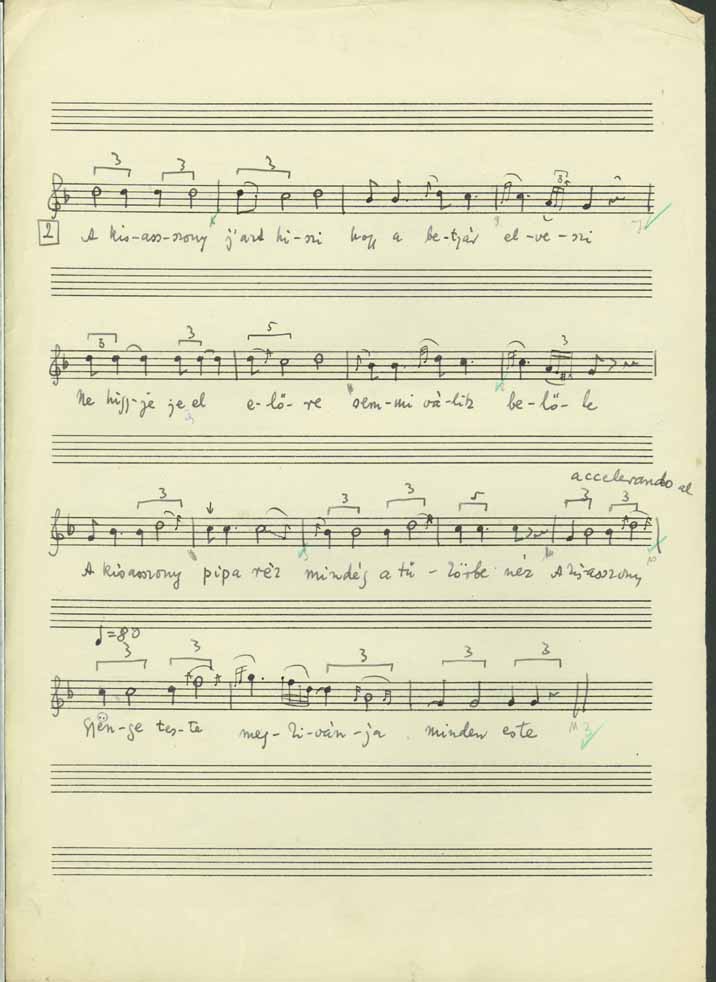 3 3 3 3
2 A kis-asz-szony j'azt hi-szi hogy a be-tyár el-ve-szi
3 3 5 3
Ne higy-je je el e-lő-re sem-mi vá-lik be-lő-le
accelerando al
3 3 3 5 3 3
A kisasszony pipa réz mindég a tü-körbe néz A kisasszony
♩=80
3 3 3 3 3
Gyën-ge tes-te meg-ki-ván-ja minden este